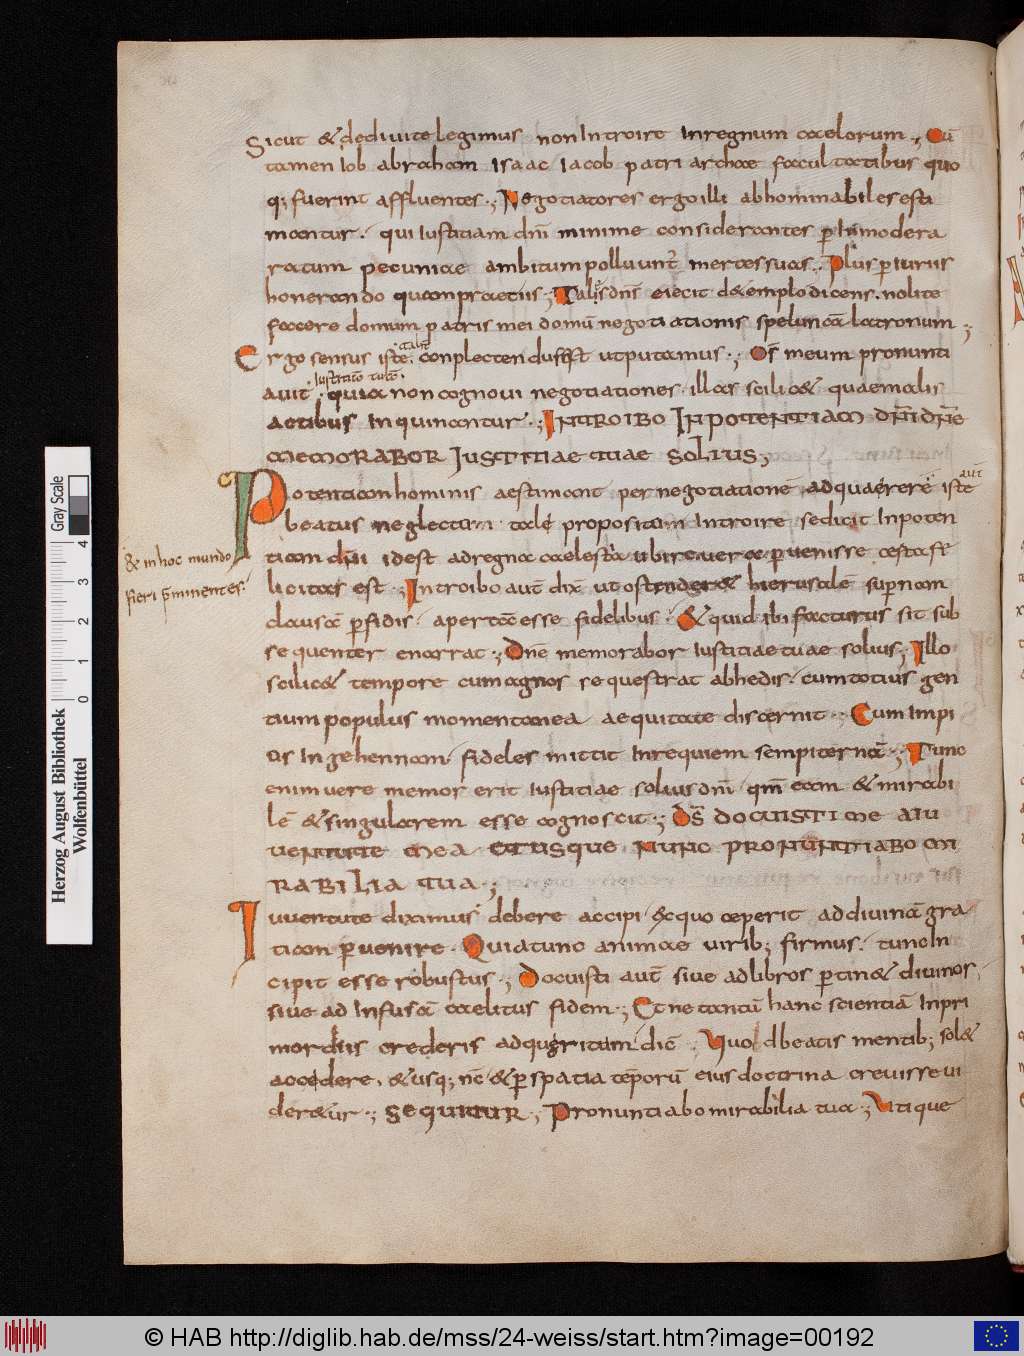 Sicut & dediuite legimus non Introire Inregnum caelorum .; Cū
tamen Iob abraham Isaac Iacob patriarchae facultatibus quo
q; fuerint affluentes .; Negotiatores ergo illi abhominabiles esti
mantur . qui Iustitiam dn̄i minime considerantes p̱ Inmodera
ratum pecuniae ambitum polluunt mercessuas .. Plus p̱iuriis
honerando quam praetiis .; Tales dn̄s eiecit d& emplo dicens . nolite
facere domum patris mei domū negotiationis speluncā latronum ;
Ergo sensus iste conplectendus est utputamus .; Os̄ meum pronunti
auit quia non cognoui negotiationes illas scilic& quaemalis
Actibus Inquinantur .; INTROIBO INPOTENTIAM DN̄I DN̄E
MEMORABOR IUSTITIAE TUAE SOLIUS ;
Potentiam hominis aestimant per negotiationē adquaerere iste
beatus neglectum tale propositum Introire sedicit Inpoten
tiam dn̄i idest adregna caelestia ubi reuera p̱uenisse
& inhoc mundo
fieri
licitas est .; Introibo aut̄ dix̄ ut ostender& hierusalē sup̱nam
clausā p̱fidis apertā esse fidelibus . & quid ibi facturus sit sub
sequenter enarrat .; Dn̄e memorabor Iustitiae tuae solius ; Illo
scilic& tempore cum agnos sequestrat abhedis . cum totius gen
tium populus momentanea aequitate discernit .; Cum Impi
os Ingehennam fideles mittit Inrequiem sempiternā .; Tunc
enim uere memor erit Iustitiae solius dn̄i qm̄ eam & mirabi
lē & singularem esse cognoscit .; DS̄ DOCUISTI ME A IU
UENTUTE MEA ET USQUE NUNC PRONUNTIABO MI
RABILIA TUA .;
Iuuentute diximus debere accipi exquo ceperit addiuinā gra
tiam p̱uenire . Quia tunc animae uirib; firmus . tunc In
cipit esse robustus .; Docuisti aut̄ siue adlibros p̱tin& diuinos ,
siue ad Infusā caelitus fidem .; Et ne tantū hanc scientiā Inpri
mordiis crederis adquęritum dic̄ ; Quod beatis mentib; sol&
accedere , & usq; nc̄ & p̱ spatia tēporū eius doctrina creuisse ui
der&ur .; SEQUITUR .; Pronuntiabo mirabilia tua .; Utique
Herzog August Bibliothek
Wolfenbüttel
0 1 2 3 4
Gray Scale
© HAB http://diglib.hab.de/mss/24-weiss/start.htm?image=00192